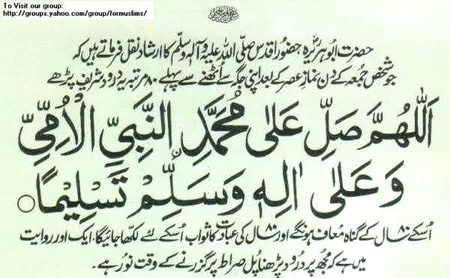 To Visit our group:
http://groups.yahoo.com/group/formuslims/
حضرت ابوہریرہؓ حضورِ اقدس صلی اللہ علیہ وآلہ وسلم کا ارشاد نقل فرماتے ہیں کہ
جو شخص جمعہ کے دن نمازِ عصر کے بعد اپنی جگہ سے اُٹھنے سے پہلے ۸۰ مرتبہ یہ درود شریف پڑھے
اَللّٰهُمَّ صَلِّ عَلٰى مُحَمَّدِنِ النَّبِيِّ الْاُمِّيِّ
وَعَلٰى اٰلِهٖ وَسَلِّمْ تَسْلِيْمًا
اُسکے ۸۰ سال کے گناہ معاف ہونگے اور ۸۰ سال کی عبادت کا ثواب اُسکے لئے لکھا جائیگا۔ ایک اور روایت
میں ہے کہ مجھ پر درود پڑھنا پُل صراط پر گزرنے کے وقت نور ہے۔